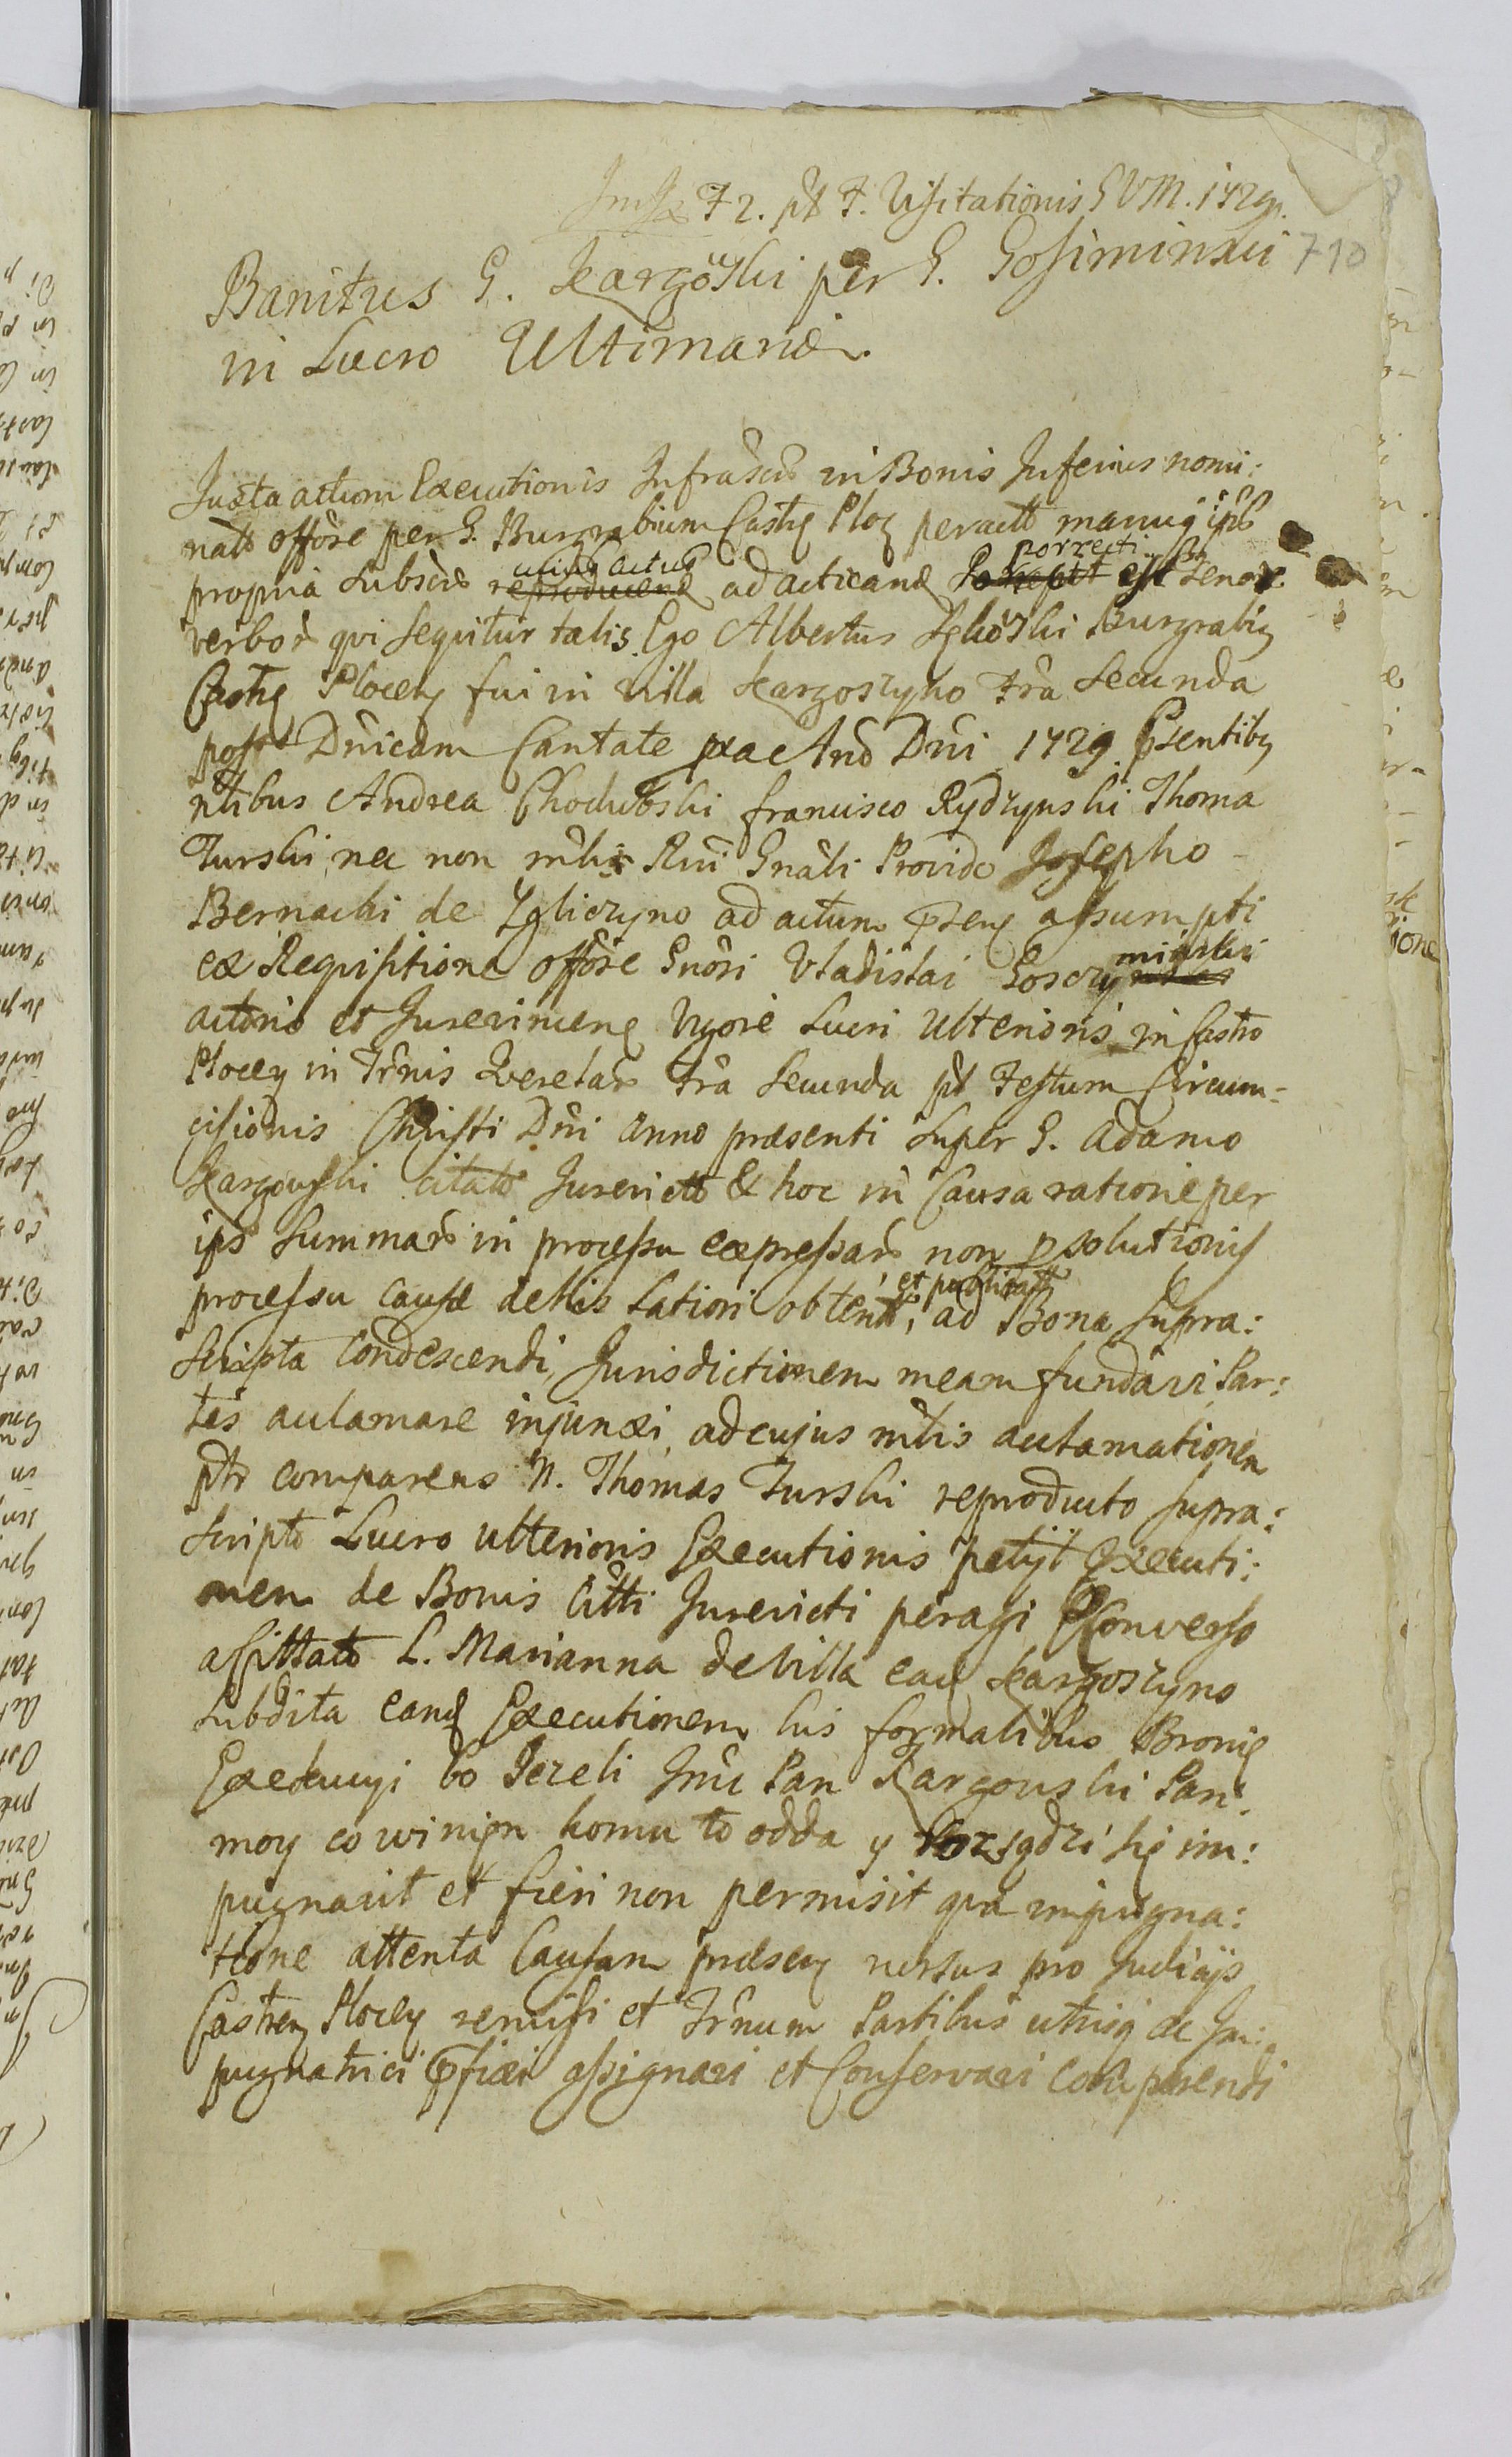 F 2. pt F. Visitationis SVM. 1729.
Banitus G. Kargoski per G. Gosiminski 710
in Lucro Ulteriori
Juxta actum Executionis Infrascr in Bonis Inferius nomi:
natt offose per G. Burgrabium Castr Ploc peractt manuq ipss
propria subscr reproducend ad acticand est tenor
ujus actus porrecti
verbor qui sequitur talis. Ego Albertus Burgrabiq
Castr Plocen fui in Villa Kargoszyno Fra Secunda
post Dnicam Cantate pxae Ano Dni 1729 Psentibq
ntibus Andrea Chodubski francisco Rydzynski Thoma
Turski, nec non mlis Rni Gnali Provido Josepho
Bernacki de Zgliczyno ad actum psens assumpti
ex Requisitione offose Gnosi Vladislai Goscy
minski
actoris et Jurevincens Vigore Lucri Ulterioris in Castro
Plocen in Trnis Querelar Fra Secunda pt Festum Circum-
cisionis Christi Dni anno praesenti super G. Adamo
Kargouski citato Jurevicto & hoc in Causa ratione per
ips summar in processu expressar non psolutionis
processu causae dettis latiori obtent, ad Bona supra:
et publicatt
scripta condescendi, Jurisdictionem meam fundavi, Par:
tes aclamare injunxi, ad cujus mlis aclamationem
ptr comparens N. Thomas Turski reproducto supra:
scripto Lucro ulterioris Executionis petijt Executi:
onem de Bonis Citti Jurevicti peragi E Converso
assittato L. Marianna de Villa eadq Kargoszyno
subdita eand Executionem his formalibus Bronię
Exekucyi bo Jezeli Jmc Pan Kargouski Pan
moy co winien komu to odda y rozsądzi się im:
pugnavit et fieri non permisit qua impugna:
tione attenta Causam praesen rursus pro Judicijs
Castren Plocen remisi et Trnum Partibus utrisq de Im:
pugnatrici pfixi assignavi et Conservavi comparendi